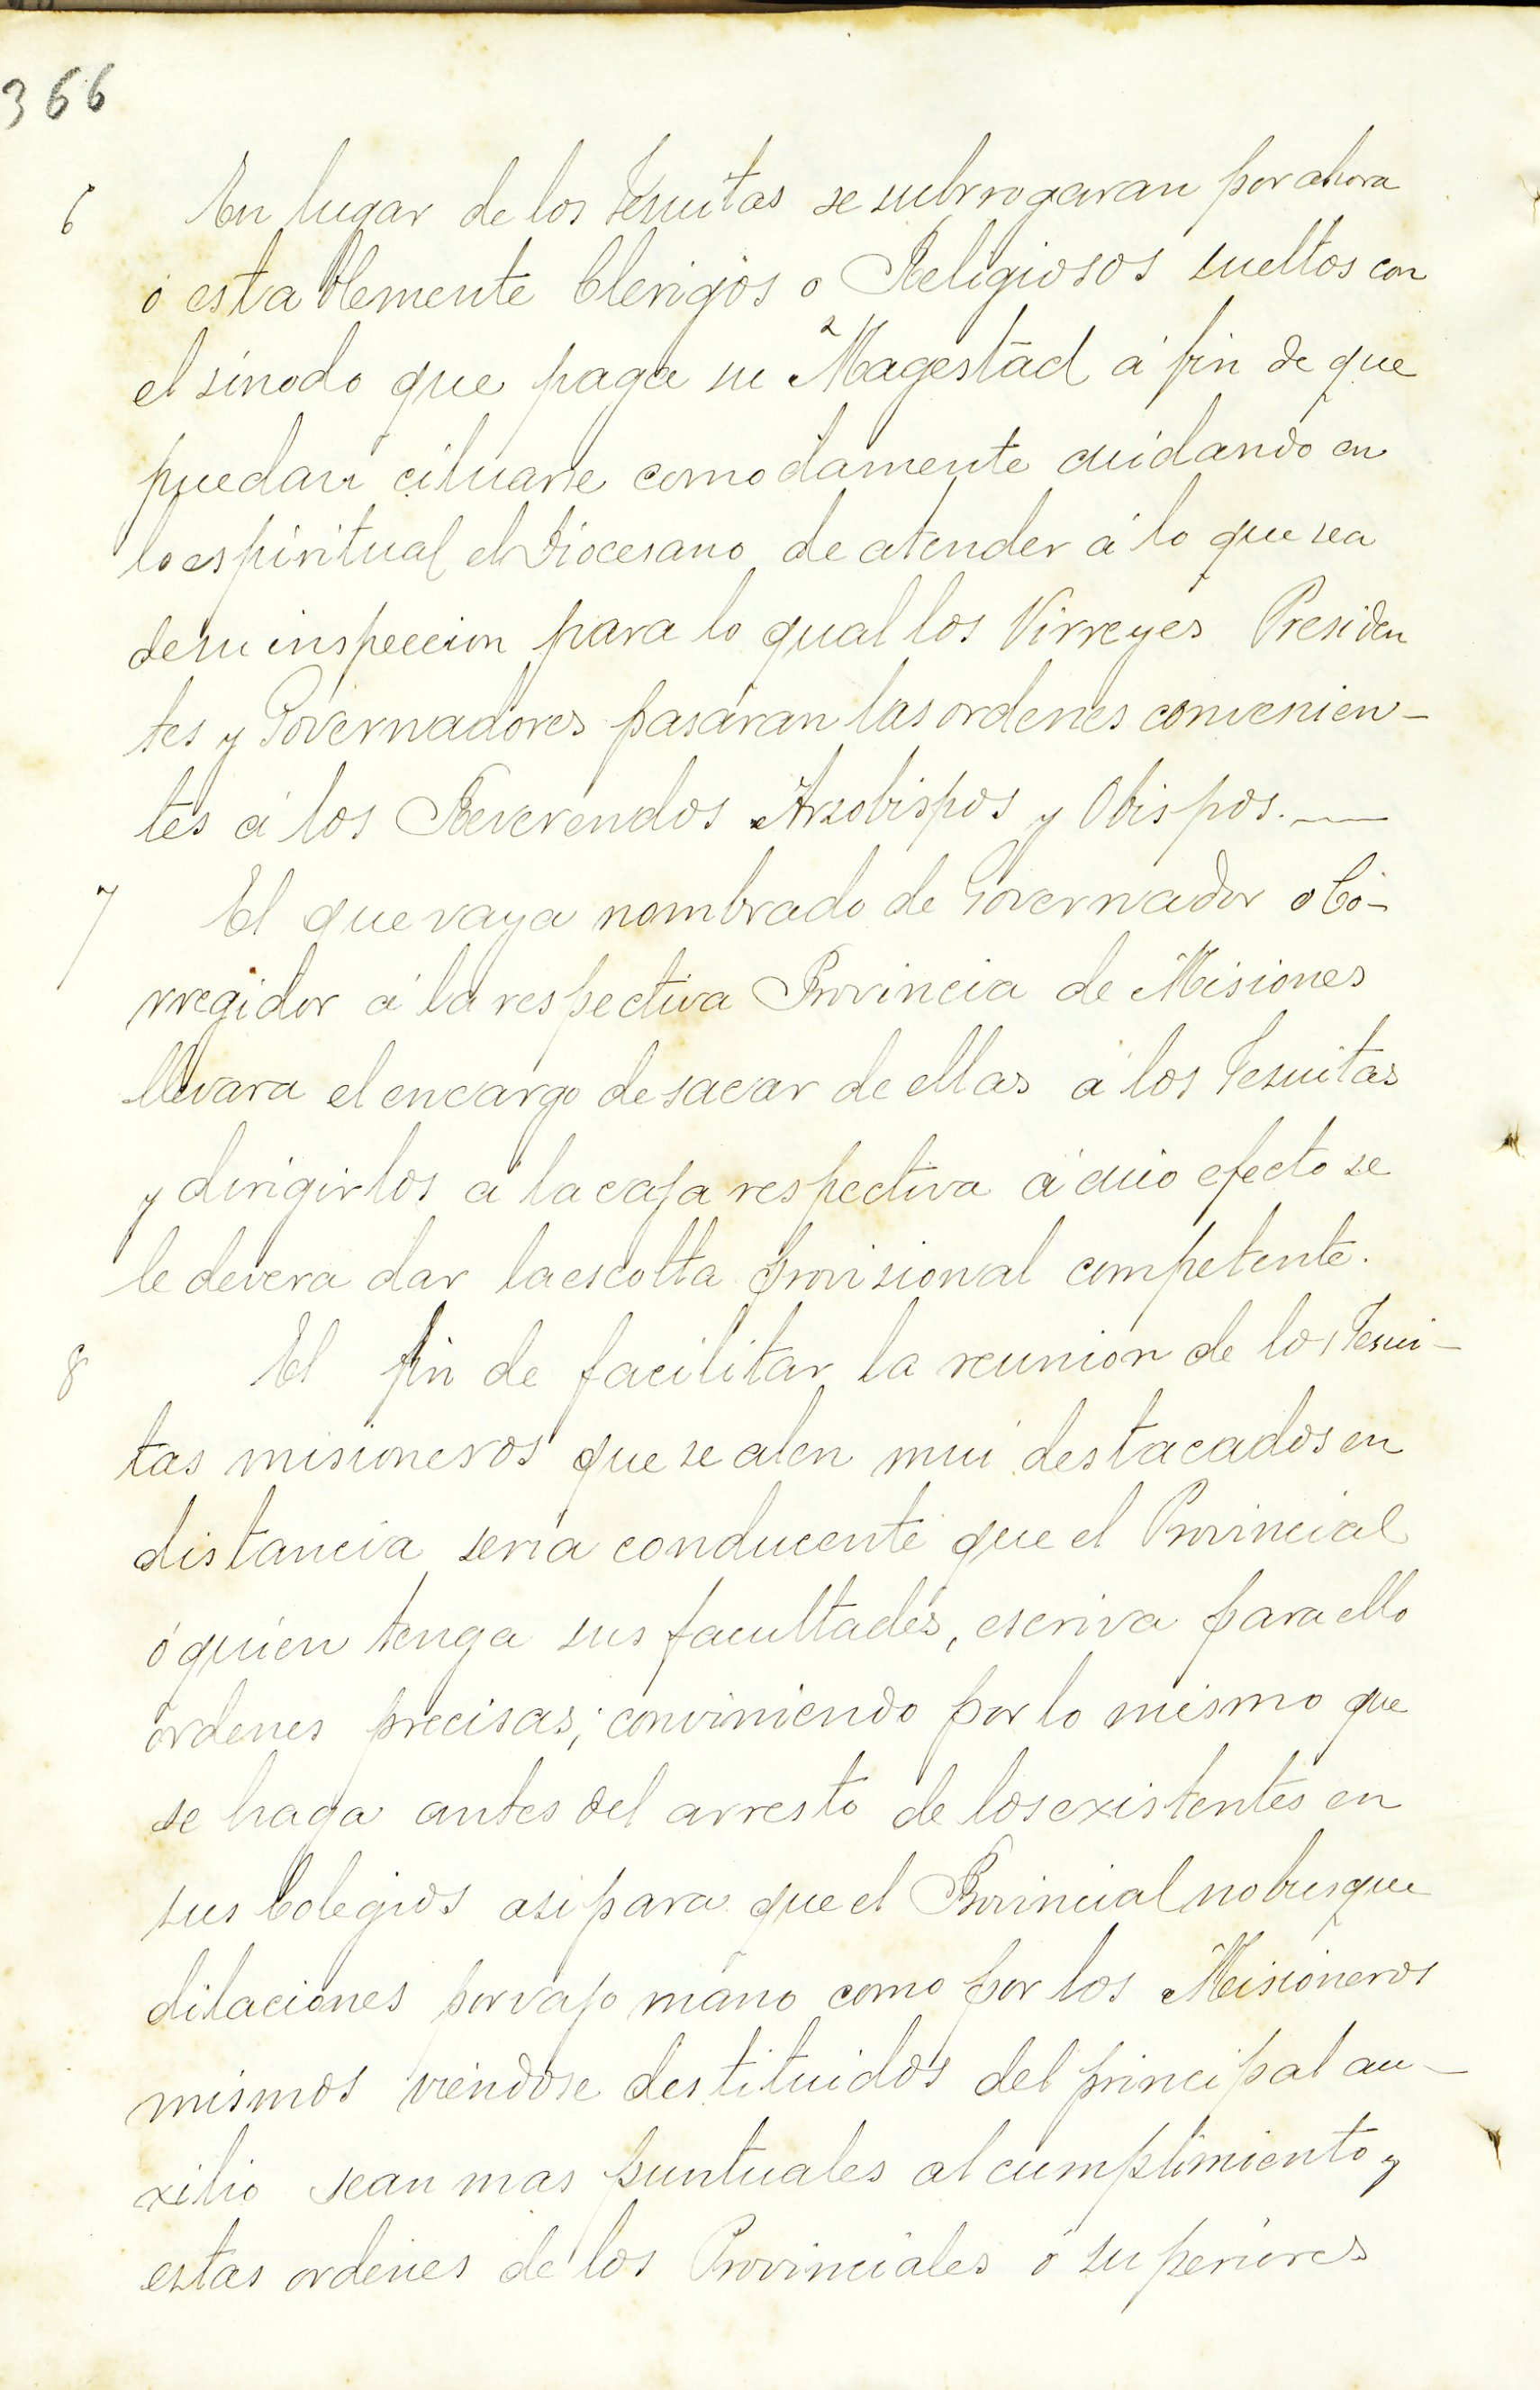 366
6 En lugar de los Jesuitas se subrrogaran por ahora
ó establemente Clerigos o Religiosos sueltos con
el sinodo que paga su Magestad á fin de que
puedan cituarse comodamente cuidando en
lo espiritual el Diocesano de atender á lo que sea
de su inspeccion para lo qual los Virreyes Presiden
tes y Governadores pasáran las ordenes convenien-
tes á los Reverendos Arzobispos y Obispos.
7 El que vaya nombrado de Governador o Co-
rregidor á la respectiva Provincia de Misiones
llevara el encargo de sacar de ellas á los Jesuitas
y dirigirlos á la caja respectiva á cuio efecto se
le devera dar la escolta provisional competente.
8 El fin de facilitar la reunion de los Jesui-
tas misioneros que se alen mui destacados en
distancia seria conducente que el Provincial
ó quien tenga sus facultades, escriva para ello
ordenes precisas; conviniendo por lo mismo que
se haga antes del arresto de los existentes en
sus Colegios asi para que el Provincial no busque
dilaciones por vajo mano como por los Misioneros
mismos viendose destituidos del principal au-
xilio sean mas puntuales al cumplimiento y
estas ordenes de los Provinciales ó superiores